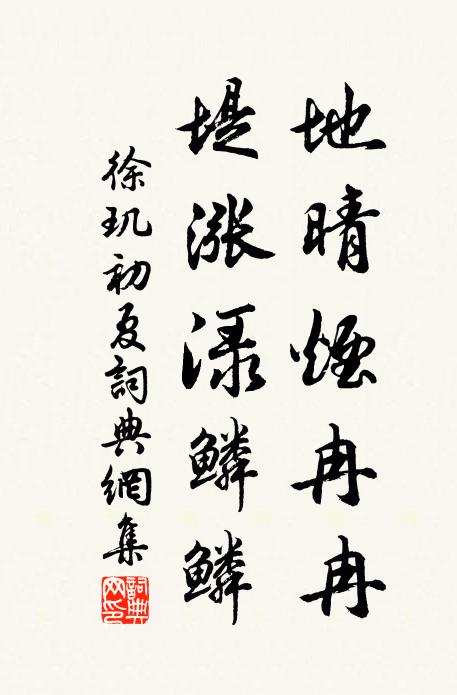 地晴煙冉冉
堤漲渌鱗鱗
徐玑初夏詞典網集
詞典网印